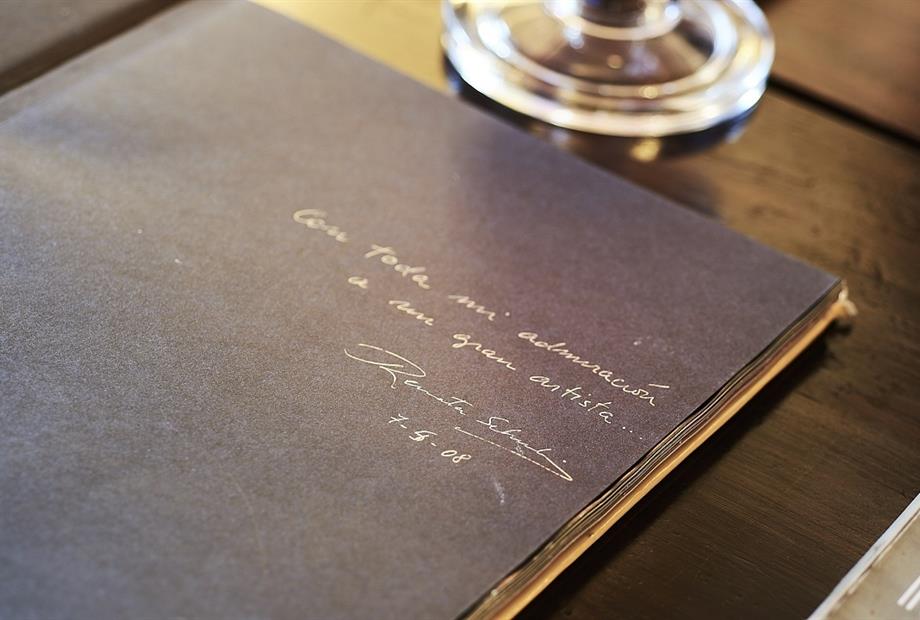 Con toda mi admiración
a un gran artista...
Renata Schussheim
7-5-08